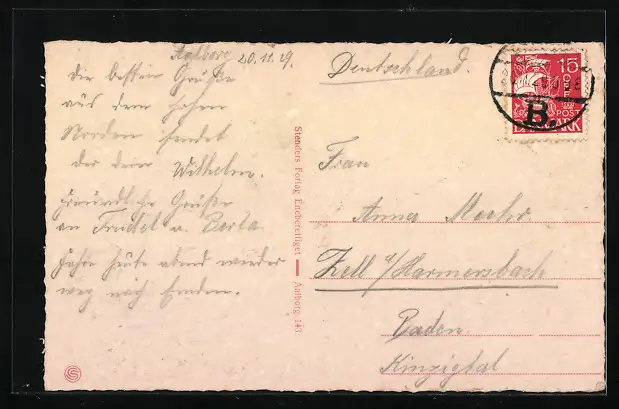 Aalborg 20.11.29.
die besten Grüße
aus dem hohen
Norden sendet
der dein Wilhelm.
freundliche Grüße
an Trudel u. Berta
fahre heute abend wieder
weg nach Emden.
Stenders Forlag Eneberettiget — Aalborg 143
Deutschland.
15
POST
DANMARK
B.
Frau
Anna Mohr
Zell a/Harmersbach
Baden
Kinzigtal
S